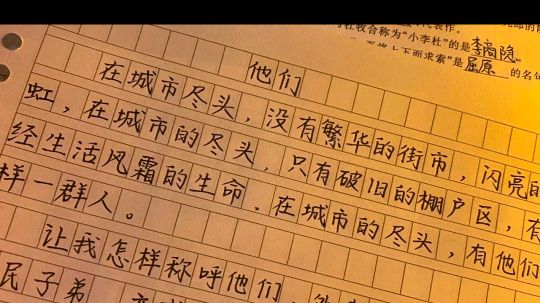 代表作。
杜牧合称为"小李杜"的是李商隐。
上下而求索"是屈原的名句
他们
在城市尽头，没有繁华的街市，闪亮的
虹，在城市的尽头，只有破旧的棚户区，有
经生活风霜的生命。在城市的尽头，有他们
样一群人。
让我怎样称呼他们，
民子弟